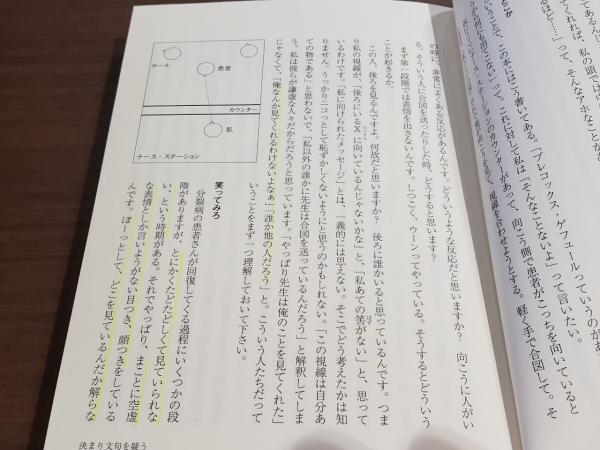 とか
いうことで、この本にはこう書いてある。「プレコックス・ゲフュールっていうのがあ
って、これに対して私は「そんなことないよ」って言いたい。
ステーションのカウンターがあって、向こう側で患者がこっちを向いていると
視線を合わせようとする。軽く手で合図して。そ
の時に、非常によくある反応があるんです。どういうような反応だと思いますか？　向こうに人がい
る。そういう人に合図を送ったりした時、どうすると思います？
まず第一段階では表情を出さないんです。しつこく、ウーンってやっている。そうするとどういう
ことが起きるか。
この人、後ろを見るんですよ。何故だと思いますか？　後ろに誰かいると思っているんです。つま
り私の視線が、「後ろにいるXに向いているんじゃないかな」と、「私あての筈がない」と、思って
いるわけです。「私に向けられたメッセージ」とは、一義的には思えない。そこでどう考えたかは知
りません。うっかりニコっとして恥ずかしくないようにと思うのかもしれない。「この視線は自分あ
ての物である」と思わないで、「私以外の誰かに先生は合図を送っているんだろう」と解釈してしま
う。私は彼らが謙虚な人々だからだろうと思っています。「やっぱり先生は俺のことを見てくれた」
じゃなくて、「俺なんか見てくれるわけないよなぁ」「誰か他の人だろう」と。こういう人たちだって
いうことをまず一つ理解しておいて下さい。
笑ってみろ
分裂病の患者さんが回復してくる過程にいくつかの段
階がありますが、とにかくたどたどしくて見ていられな
い、という時期がある。それでやっぱり、まことに空虚
な表情としか言いようがない目つき、顔つきをしている
んです。ぼーっとして、どこを見ているんだか解らな
ホール
患者
カウンター
私
ナース・ステーション
決まり文句を疑う